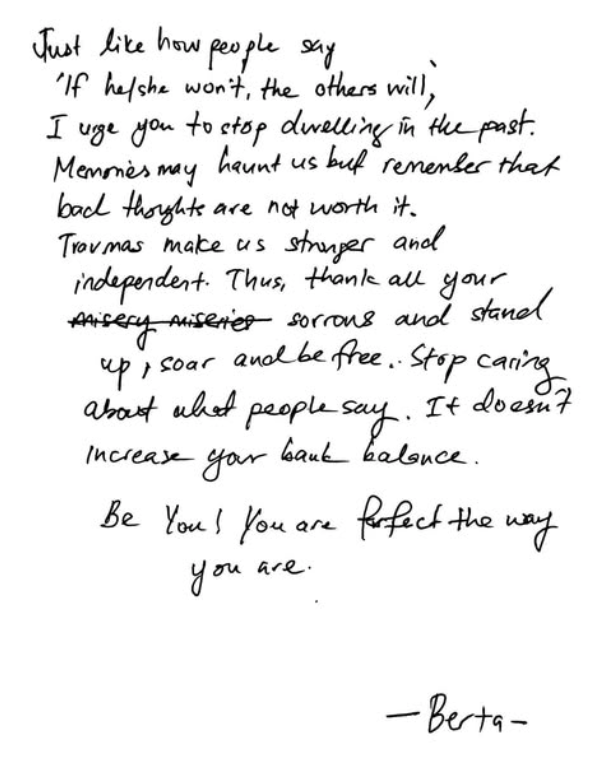 Just like how people say
'If he/she won't, the others will,'
I urge you to stop dwelling in the past.
Memories may haunt us but remember that
bad thoughts are not worth it.
Travmas make us stronger and
independent. Thus, thank all your
misery miseries sorrows and stand
up, soar and be free.. Stop caring
about what people say. It doesn't
increase your bank balance.
Be You! You are perfect the way
you are.
— Berta –